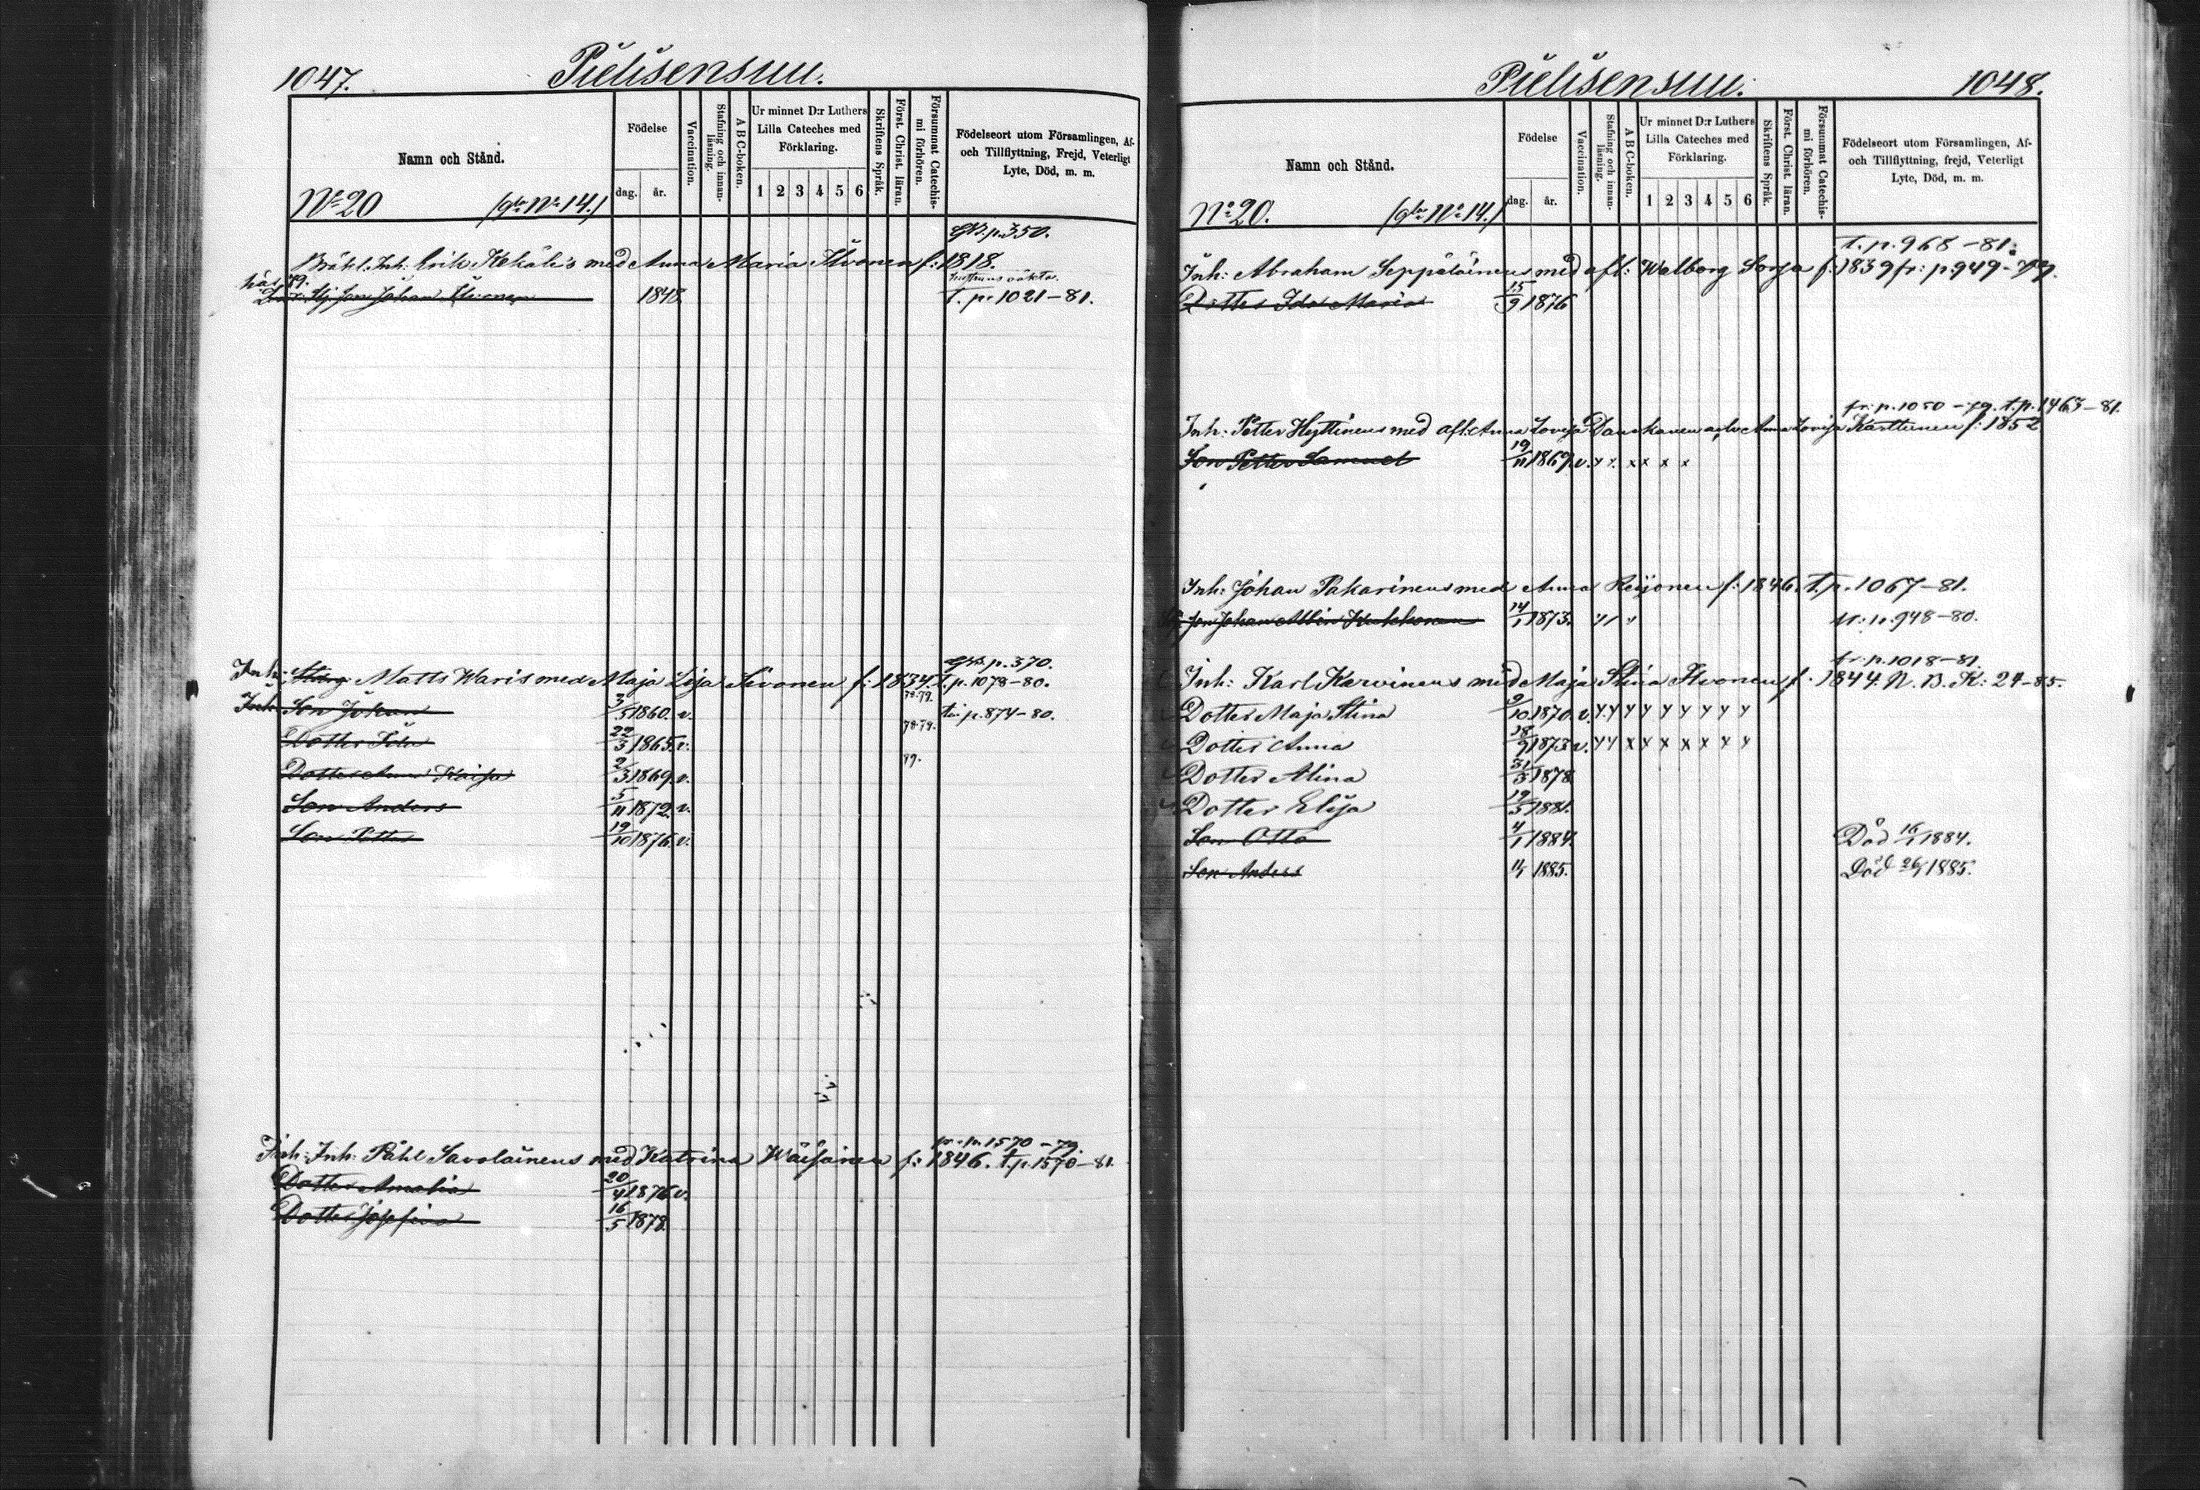 1047.
Pielisensuu.
Namn och Stånd.
Födelse
dag.
år.
Vaccination.
Stafning och innan-
läsning.
A B C-boken.
Ur minnet D:r Luthers
Lilla Cateches med
Förklaring.
1 2 3 4 5 6
Skriftens Språk.
Först. Christ. läran.
Försummat Catechis-
mi förhören.
Födelseort utom Församlingen, Af-
och Tillflyttning, Frejd, Veterligt
Lyte, Död, m. m.
No 20 (gla No 14.)
p. 350.
Inh: Erik Kekäle's med Anna Maria Ilvonen f: 1818.
79.
Son Johan Ilvonen 1848. t. p. 1021-81.
p. 370.
Inh: Matts Waris med Maja Lisa Sivonen f: 1834. t. p. 1078-80.
78-79.
Inh: Son Johan 3/5 1860. v. p. 874-80.
78-79.
Dotter 22/3 1865. v.
79.
Dotter Anna Kaisa 2/3 1869. v.
Son Anders 5/11 1872. v.
Son Petter 19/10 1876. v.
fr. p. 1570-79.
Inh: Inh: Påhl Savolainens med Katrina Wäisänen f: 1846. t. p. 1570-81.
Dotter Amalia 20/4 1876. v.
Dotter Josefina 16/5 1878.
Pielisensuu.
1048.
Namn och Stånd.
Födelse
dag.
år.
Vaccination.
Stafning och innan-
läsning.
A B C-boken.
Ur minnet D:r Luthers
Lilla Cateches med
Förklaring.
1 2 3 4 5 6
Skriftens Språk.
Först. Christ. läran.
Försummat Catechis-
mi förhören.
Födelseort utom Församlingen, Af-
och Tillflyttning, frejd, Veterligt
Lyte, Död, m. m.
No 20. (gla No 14.)
t. p. 968-81.
Inh: Abraham Seppäläinens med afl: Walborg Sorsa f: 1839 fr: p. 949-79.
Dotter Ida Maria 15/9 1876
fr: p. 1050-79. t. p. 1463-81.
Inh: Petter Hyttinens med afl: Anna Lovisa Danskanen Anna Lovisa Karttunen f: 1852
Son Petter Samuel 19/11 1869. v. x x x x x x
Inh: Johan Pakarinens med Anna Reijonen f: 1846. t. p. 1067-81.
Son Johan Albin Kukkonen 14/1 1873. p. 948-80.
fr. p. 1018-81.
Inh: Karl Karvinens med Maja Stina Ilvonen f. 1844. N. B. K: 24-85.
Dotter Maja Stina 9/10 1870. v. x x x x x x x x x
Dotter Anna 18/9 1873. v. x x x x x x x x x
Dotter Alina 31/3 1878.
Dotter Elisa 19/3 1881.
Son Otto 4/1 1884. Död 16/1 1884.
Son Anders 1885. Död 1885.